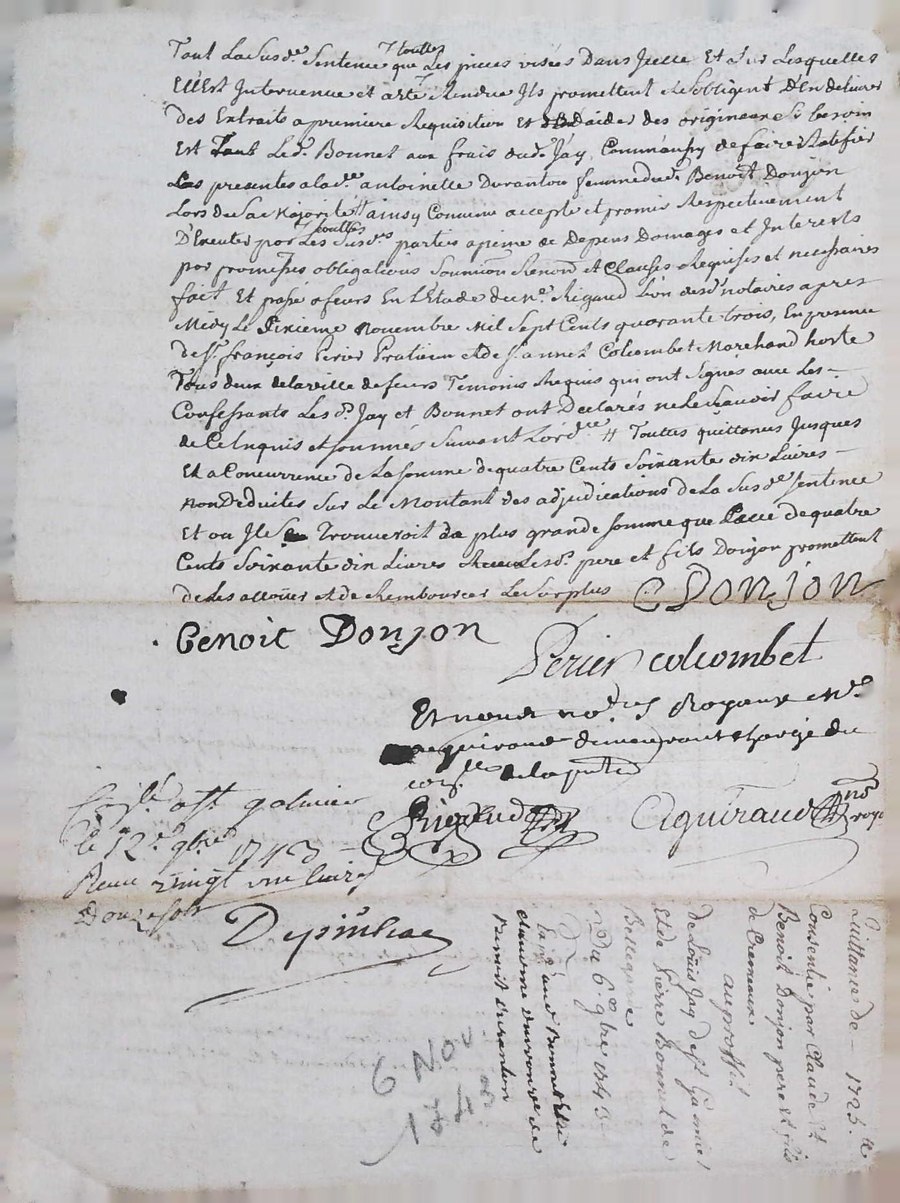 Tant La Susd.e Sentence que toutes Les pieces visées Dans Icelle Et Sur Lesquelles
Elle Est Intervenue et a eté Rendue Ils promettent et Sobligent D'En delivrer
Des Extraits a premiere Requisition Et Daider des origineaux Si besoin
Est Tant Led. Bonnet aux frais dud. Jay, Comm'aussy de faire Ratifier
Les presentes a lad.e antoinette Duranton femme dud. Benoît Donjon
Lors de Sa Majorité ainsy Convenu accepté et promis Respectivement
D'Executer par toutes Les Susd.es parties a peine de Depens Domages et Interests
par promesses obligations Soumions Renon.on Et Clauses Requises et necessaires
fait Et passé a feurs En L'Etude de m.e Rigaud L'un desd. notaires apres
Midy Le Sixieme Novembre Mil Sept Cents quarante trois, En presence
de S.r françois Perier Praticien et de S. annet Colcombet Marchand hoste
Tous deux de la ville de feurs Temoins Requis qui ont Signés avec Les
Confessants Les d. Jay et Bonnet ont Declarés ne Le Scavoir faire
de Ce Enquis et Sommés Suivant L'ord.ce # Toutes quittances Jusques
Et a Concurrence de La Somme de quatre Cents Soixante dix Livres
non Deduites Sur Le Montant des adjudications de La Susd.e Sentence
Et ou Il Se Trouveroit de plus grande Somme que Celle de quatre
Cents Soixante dix Livres Lesd. pere et fils Donjon promettent
de Les allouer et de Rembourcer Le Surplus C Donjon
Benoit Donjon
Perier colcombet
Et nous no.res Royaux
aguiraud demeurant chargé du
de la minutte
Rigaud Aguiraud no.re royal
Con.lé a
le 12.e 9bre 1743
Receu vingt une livres
Douze sols
Quittance de 1725.#
Consentie par Claude et
Benoit Donjon pere et fils
de Cremeaux
au proffit
de Loüis Jay de S.t
Et de Pierre Bonnet de
Bellegarde
Du 6.e 9bre 1743
Benoit Duranton
6 NOV.
1743